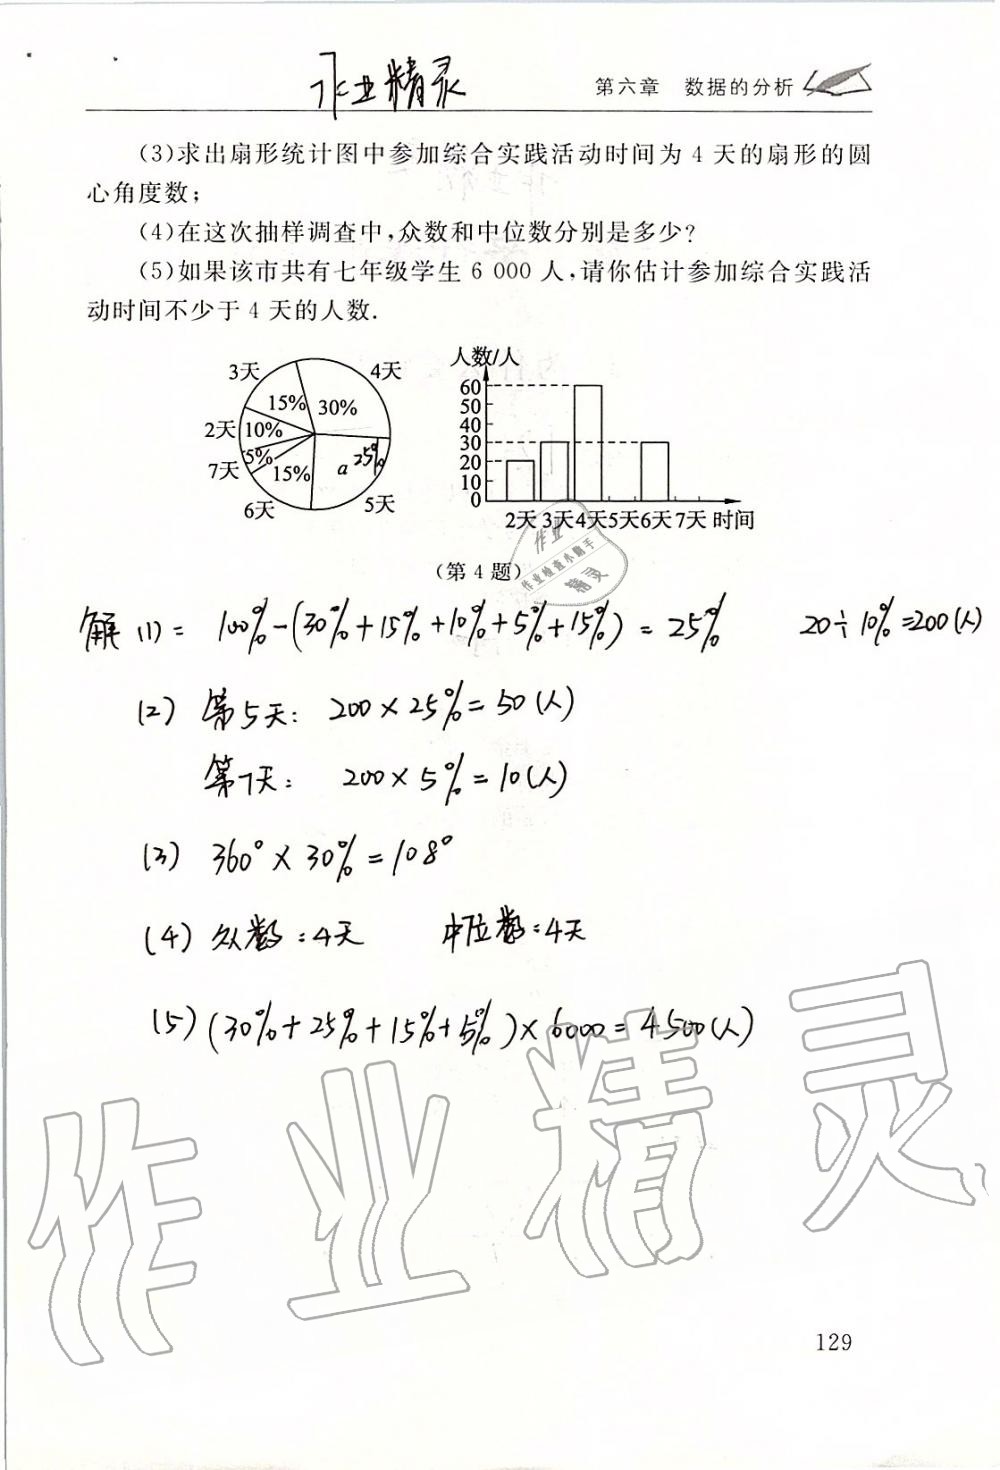 作业精灵
第六章 数据的分析
(3)求出扇形统计图中参加综合实践活动时间为 4 天的扇形的圆
心角度数;
(4)在这次抽样调查中,众数和中位数分别是多少?
(5)如果该市共有七年级学生 6 000 人,请你估计参加综合实践活
动时间不少于 4 天的人数.
3天 4天
15% 30%
2天 10%
7天 5% 15% a 25%
6天 5天
人数/人
60
50
40
30
20
10
0
2天 3天 4天 5天 6天 7天 时间
(第 4 题)
作业
作业检查小助手
精灵
解 (1) = 100%-(30%+15%+10%+5%+15%) = 25% 20÷10%=200(人)
(2) 第5天: 200×25%=50(人)
第7天: 200×5%=10(人)
(3) 360°×30%=108°
(4) 众数:4天 中位数:4天
(5) (30%+25%+15%+5%)×6000=4500(人)
作业精灵
129